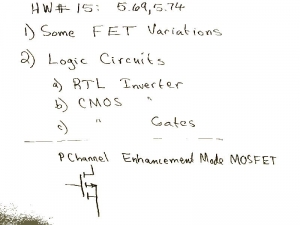 HW# 15: 5.69, 5.74
1) Some FET Variations
2) Logic Circuits
a) RTL Inverter
b) CMOS "
c) " Gates
P Channel Enhancement Mode MOSFET